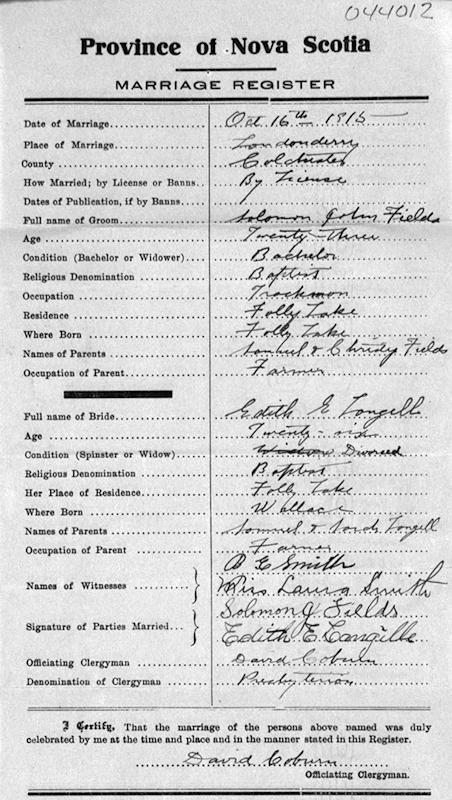 044012
Province of Nova Scotia
MARRIAGE REGISTER
Date of Marriage Oct 16th 1915
Place of Marriage Londonderry
County Colchester
How Married; by License or Banns By License
Dates of Publication, if by Banns
Full name of Groom Solomon John Fields
Age Twenty-three
Condition (Bachelor or Widower) Bachelor
Religious Denomination Baptist
Occupation Trackman
Residence Folly Lake
Where Born Folly Lake
Names of Parents Samuel & Christy Fields
Occupation of Parent Farmer
Full name of Bride Edith E Langille
Age Twenty-six
Condition (Spinster or Widow) Divorced
Religious Denomination Baptist
Her Place of Residence Folly Lake
Where Born Wallace
Names of Parents Samuel & Langill
Occupation of Parent Farmer
Names of Witnesses E Smith
Miss Laura Smith
Signature of Parties Married Solomon J Fields
Edith E Langille
Officiating Clergyman David Coburn
Denomination of Clergyman Presbyterian
I Certify, That the marriage of the persons above named was duly
celebrated by me at the time and place and in the manner stated in this Register.
David Coburn
Officiating Clergyman.